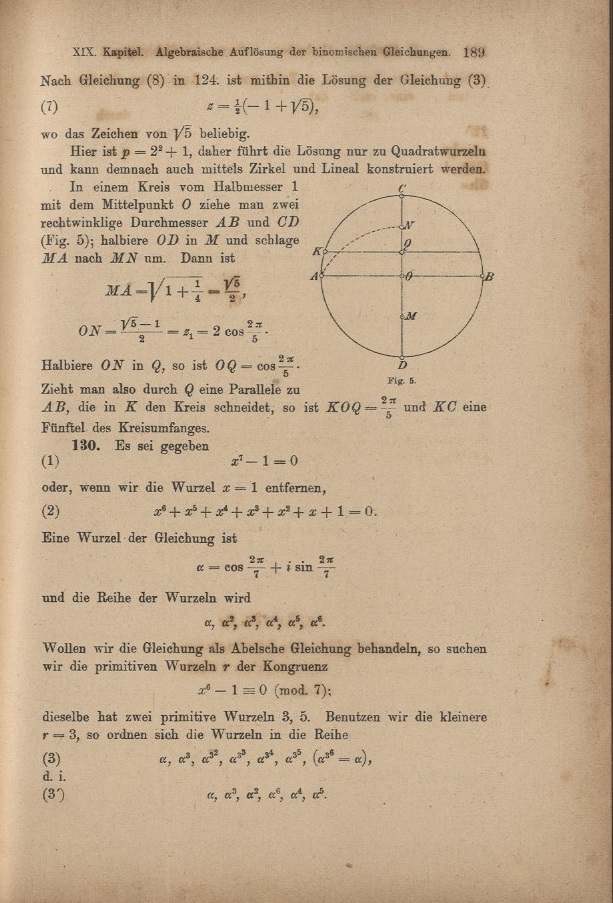 XIX. Kapitel. Algebraische Auflösung der binomischen Gleichungen. 189
Nach Gleichung (8) in 124. ist mithin die Lösung der Gleichung (3)
(7) z = ½(− 1 + √5),
wo das Zeichen von √5 beliebig.
Hier ist p = 2² + 1, daher führt die Lösung nur zu Quadratwurzeln
und kann demnach auch mittels Zirkel und Lineal konstruiert werden.
In einem Kreis vom Halbmesser 1
mit dem Mittelpunkt O ziehe man zwei
rechtwinklige Durchmesser AB und CD
(Fig. 5); halbiere OD in M und schlage
MA nach MN um. Dann ist
MA = √(1 + 1/4) = √5/2,
ON = (√5 − 1)/2 = z₁ = 2 cos 2π/5.
Halbiere ON in Q, so ist OQ = cos 2π/5.
Zieht man also durch Q eine Parallele zu
C
N
Q
K
A
O
B
M
D
Fig. 5.
AB, die in K den Kreis schneidet, so ist KOQ = 2π/5 und KC eine
Fünftel des Kreisumfanges.
130. Es sei gegeben
(1) x⁷ − 1 = 0
oder, wenn wir die Wurzel x = 1 entfernen,
(2) x⁶ + x⁵ + x⁴ + x³ + x² + x + 1 = 0.
Eine Wurzel der Gleichung ist
α = cos 2π/7 + i sin 2π/7
und die Reihe der Wurzeln wird
α, α², α³, α⁴, α⁵, α⁶.
Wollen wir die Gleichung als Abelsche Gleichung behandeln, so suchen
wir die primitiven Wurzeln r der Kongruenz
x⁶ − 1 ≡ 0 (mod. 7);
dieselbe hat zwei primitive Wurzeln 3, 5. Benutzen wir die kleinere
r = 3, so ordnen sich die Wurzeln in die Reihe
(3) α, α³, α^3², α^3³, α^3⁴, α^3⁵, (α^3⁶ = α),
d. i.
(3′) α, α³, α², α⁶, α⁴, α⁵.